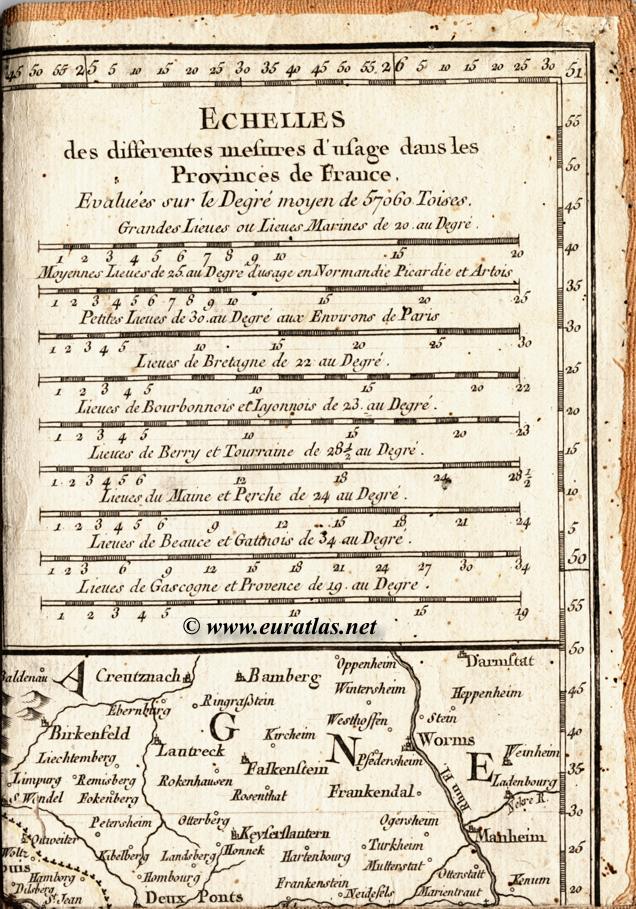 45 50 55 25 5 10 15 20 30 35 40 45 50 55 26 5 10 15 20 25 30 51
ECHELLES
des differentes mesures d'usage dans les
Provinces de France.
Evaluées sur le Degré moyen de 57060 Toises.
Grandes Lieues ou Lieues Marines de 20 au Degré.
1 2 3 4 5 6 7 8 9 10 15 20
Moyennes Lieues de 25 au Degré d'usage en Normandie Picardie et Artois
1 2 3 4 5 6 7 8 9 10 15 20 25
Petites Lieues de 30 au Degré aux Environs de Paris
1 2 3 4 5 10 15 20 25 30
Lieues de Bretagne de 22 au Degré.
1 2 3 4 5 10 15 20 22
Lieues de Bourbonnois et Lyonnois de 23 au Degré.
1 2 3 4 5 10 15 20 23
Lieues de Berry et Tourraine de 28 1/2 au Degré.
1 2 3 4 5 6 12 18 24 28 1/2
Lieues du Maine et Perche de 24 au Degré.
1 2 3 4 5 6 9 12 15 18 21 24
Lieues de Beauce et Gattinois de 34 au Degré.
1 2 3 6 9 12 15 18 21 24 27 30 34
Lieues de Gascogne et Provence de 19 au Degré.
1 2 3 4 5 10 15 19
© www.euratlas.net
55
50
45
40
35
30
25
20
15
10
5
50
55
50
45
40
35
30
25
20
Baldenau A Creutznach Bamberg Oppenheim Darmstat
Wintersheim Heppenheim
Ebernburg Ringraßtein
Birkenfeld G Kircheim Westhoffen Stein
Lautreck N Pfedersheim Worms Weinheim
Liechtemberg Falkenstein E
Limpurg Remisberg Rokenhausen Ladenbourg
S. Wendel Fokenberg Rosenthat Frankendal Rhin Fl. Nekre R.
Petersheim Otterberg Ogersheim
Ottweiler Keyserslautern Manheim
Woltz Kibelberg Landsberg Honnek Hartenbourg Turkheim
Mutterstat
Hamborg Hombourg Otterstatt
Dilsberg Frankenstein Kenum
St. Jean Deux Ponts Neidefels Marientraut